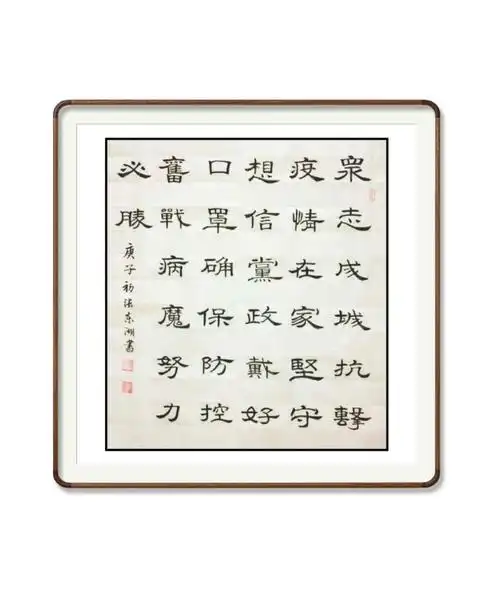 衆志成城抗擊
疫情在家堅守
想信黨政戴好
口罩确保防控
奮戰病魔努力
必勝
庚子初張东湖書